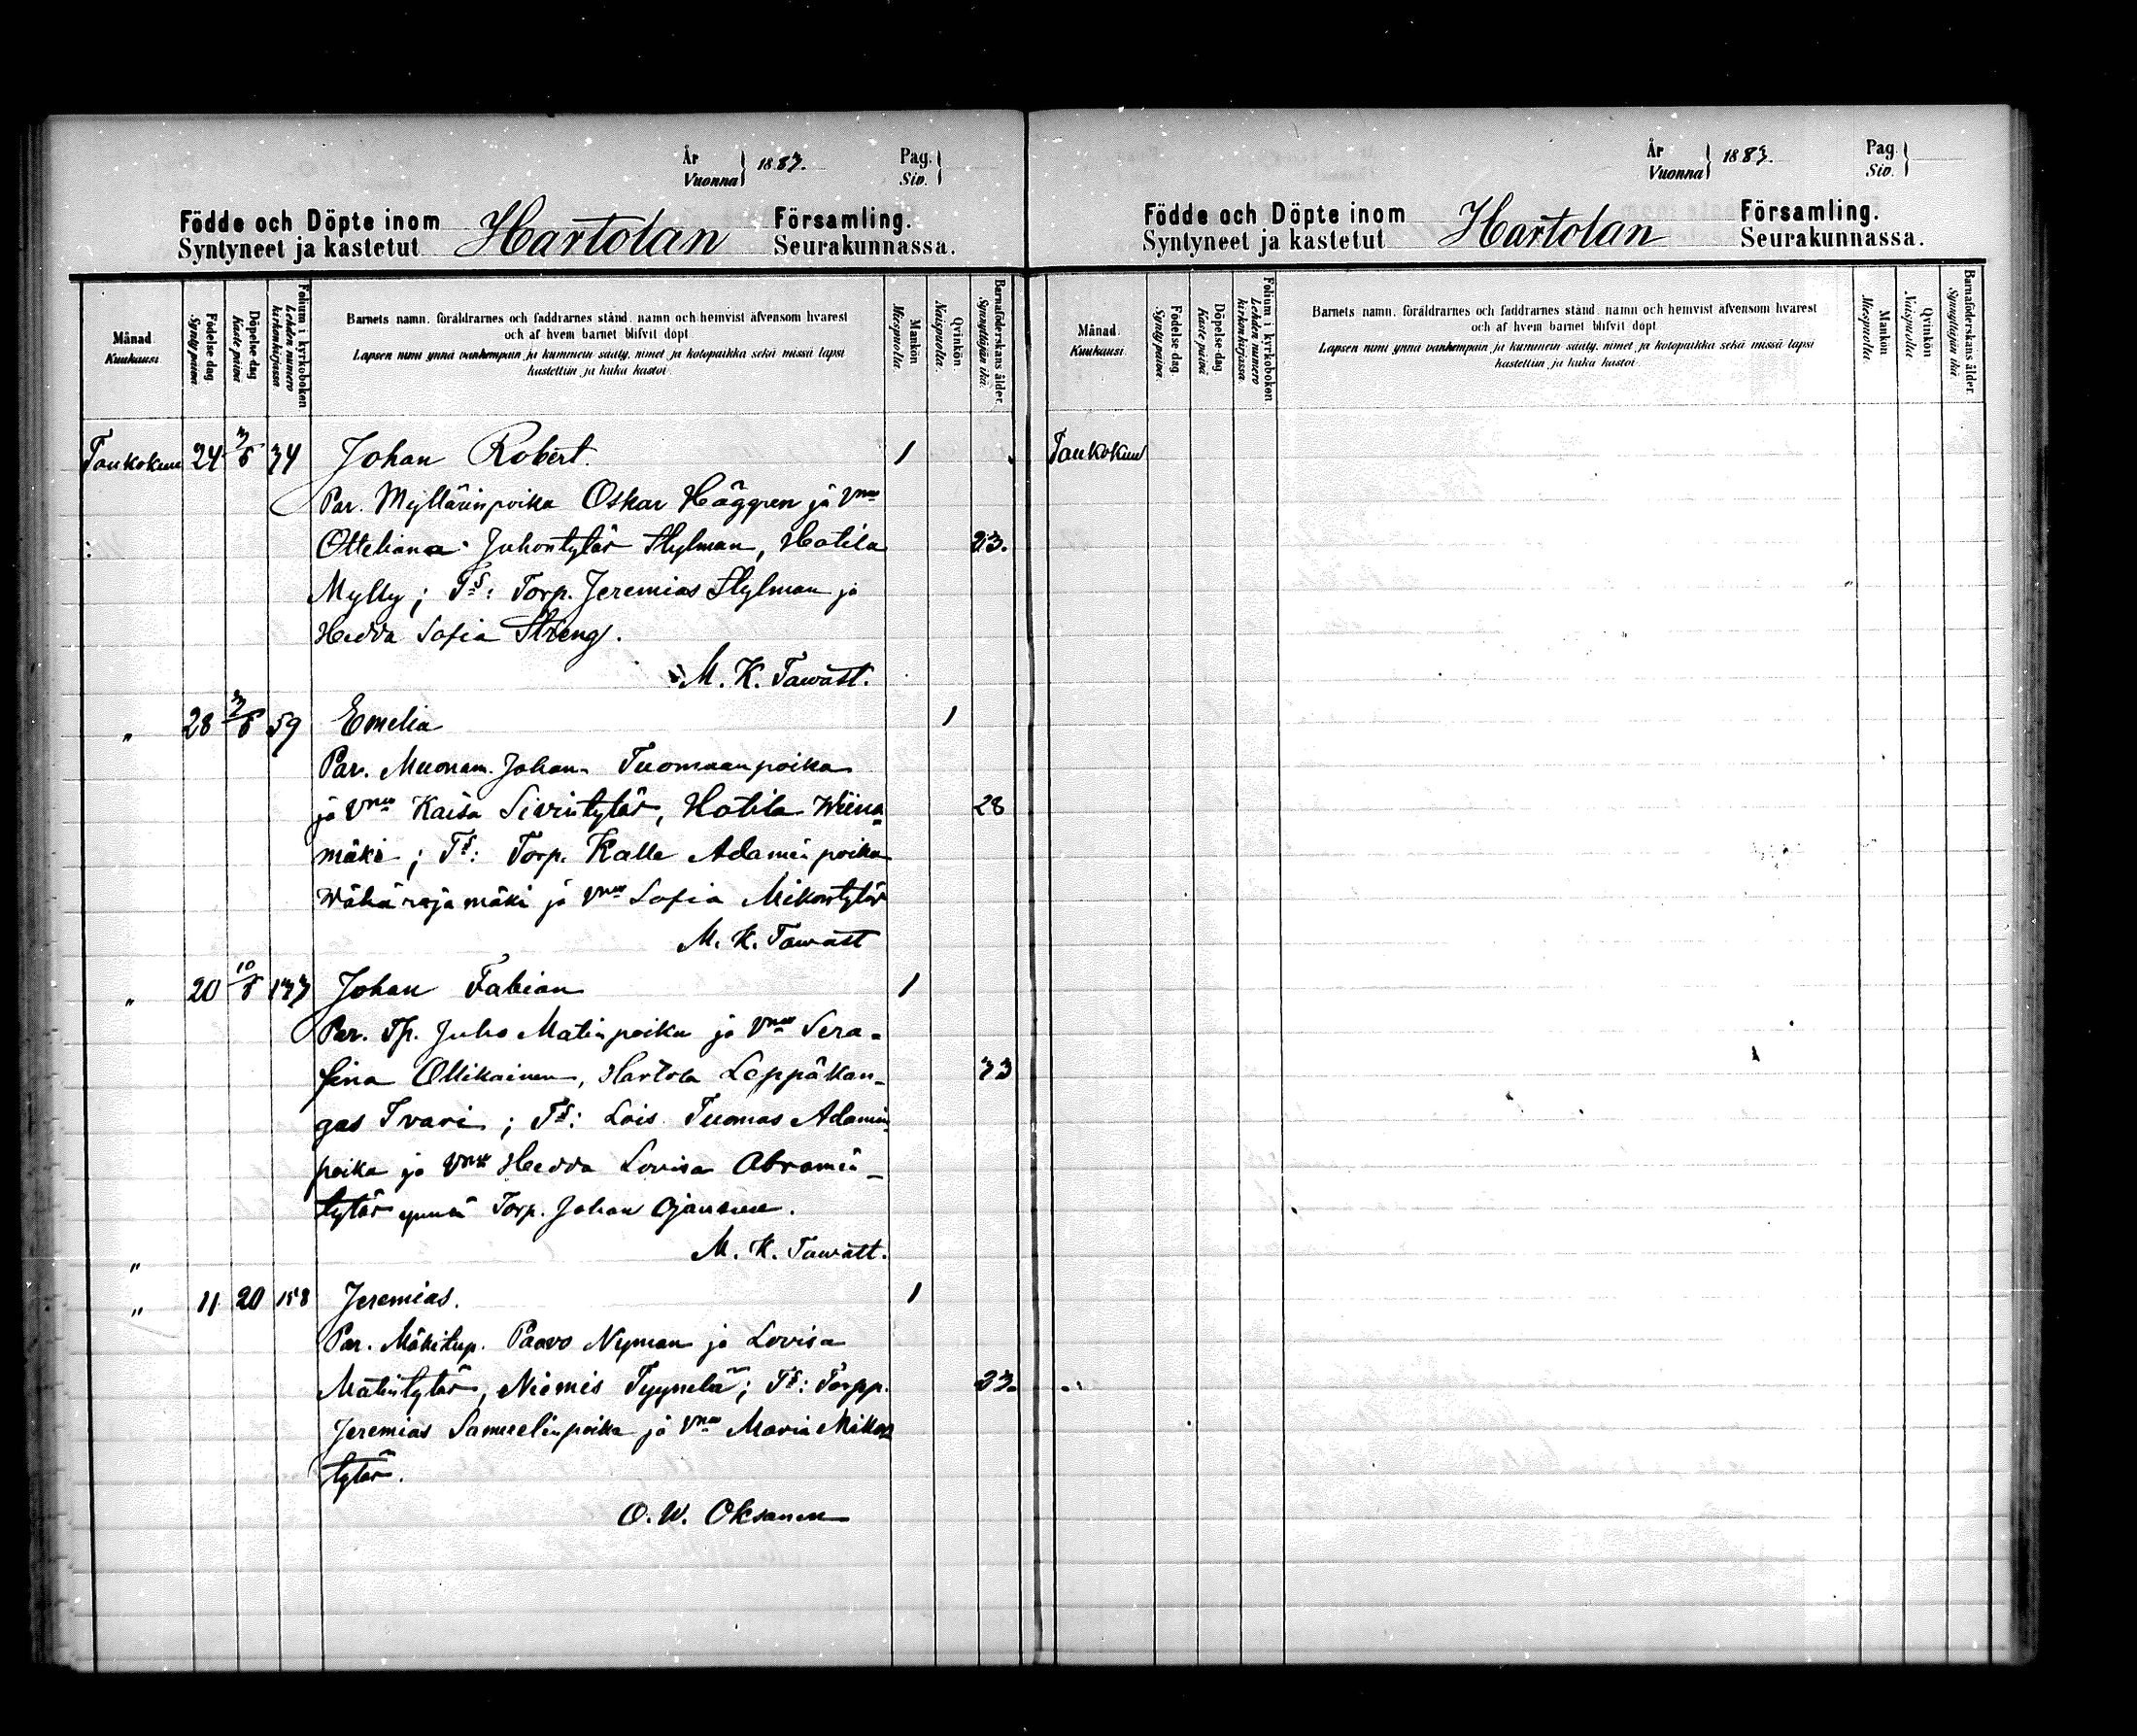 År
Vuonna
1883.
Pag.
Siv.
Födde och Döpte inom
Syntyneet ja kastetut
Hartolan
Församling.
Seurakunnassa.
Månad
Kuukausi
Födelse dag
Synty päivä
Döpelse dag
Kaste päivä
Folium i kyrkoboken
Lehden numero kirkonkirjassa
Barnets namn, föräldrarnes och faddrarnes stånd, namn och hemvist äfvensom hvarest
och af hvem barnet blifvit döpt
Lapsen nimi ynnä vanhempain ja kummein sääty, nimet ja kotopaikka sekä missä lapsi
kastettiin ja kuka kastoi.
Mankön
Miespuolta.
Qvinkön
Naispuolta.
Barnaföderskans ålder.
Synnyttäjän ikä.
Toukokuu 24 3/6 34 Johan Robert. 1
Par. Myllärinpoika Oskar Häggren ja Vmo
Otteliana Juhontytär Stylman, Hotila 23.
Mylly; Ts: Torp. Jeremias Stylman ja
Hedda Sofia Streng.
M. K. Tawast.
" 28 3/6 59 Emelia 1
Par. Muonam. Johan Tuomaanpoika
ja Vmo Kaisa Siviintytär, Hotila Wiina 28
mäki; Ts: Torp. Kalle Adamin poika
Wähärajamäki ja Vmo Sofia Mikontytär
M. K. Tawast
" 20 10/6 133 Johan Fabian 1
Par. Tp. Juho Matinpoika ja Vmo Sera-
fina Ollikainen, Hartola Leppäkan- 33
gas Ivari; Ts: Lois Tuomas Adamin
poika ja Vmo Hedda Lovisa Abramin-
tytär ynnä Torp. Johan Ojanen.
" M. K. Tawast.
" 11 20 158 Jeremias. 1
Par. Mäkitup. Paavo Nyman ja Lovisa
Matintytär, Niemis Tyynelä; Ts: Torpp. 23.
Jeremias Samuelinpoika ja Vmo Maria Mikon
tytär.
O. W. Oksanen
År
Vuonna
1883.
Pag.
Siv.
Födde och Döpte inom
Syntyneet ja kastetut
Hartolan
Församling.
Seurakunnassa.
Månad
Kuukausi
Födelse dag.
Synty päivä.
Döpelse dag.
Kaste päivä
Folium i kyrkoboken
Lehden numero kirkonkirjassa.
Barnets namn, föräldrarnes och faddrarnes stånd, namn och hemvist äfvensom hvarest
och af hvem barnet blifvit döpt
Lapsen nimi ynnä vanhempain ja kummein sääty, nimet ja kotopaikka sekä missä lapsi
kastettiin ja kuka kastoi.
Mankön
Miespuolta.
Qvinkön
Naispuolta.
Barnaföderskans ålder.
Synnyttäjän ikä
Toukokuu